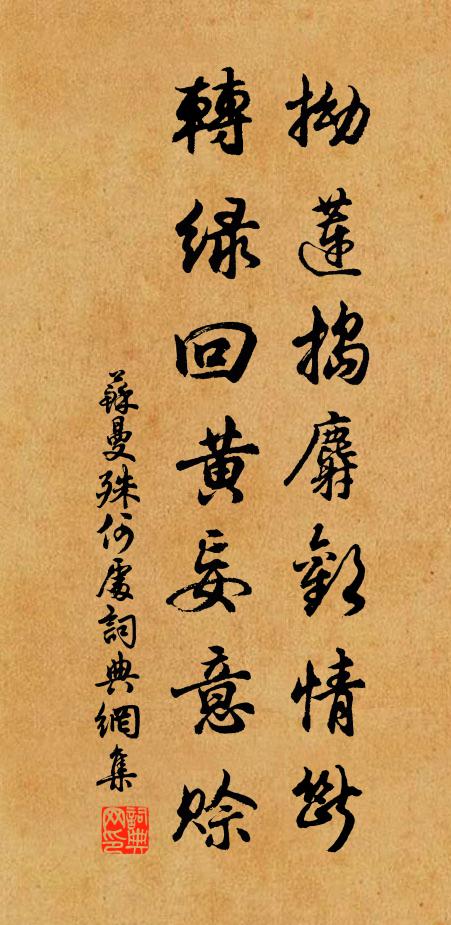 拗蓮搗麝歡情斷
轉綠回黃妄意賒
蘇曼殊何處詞典網集
詞典网印